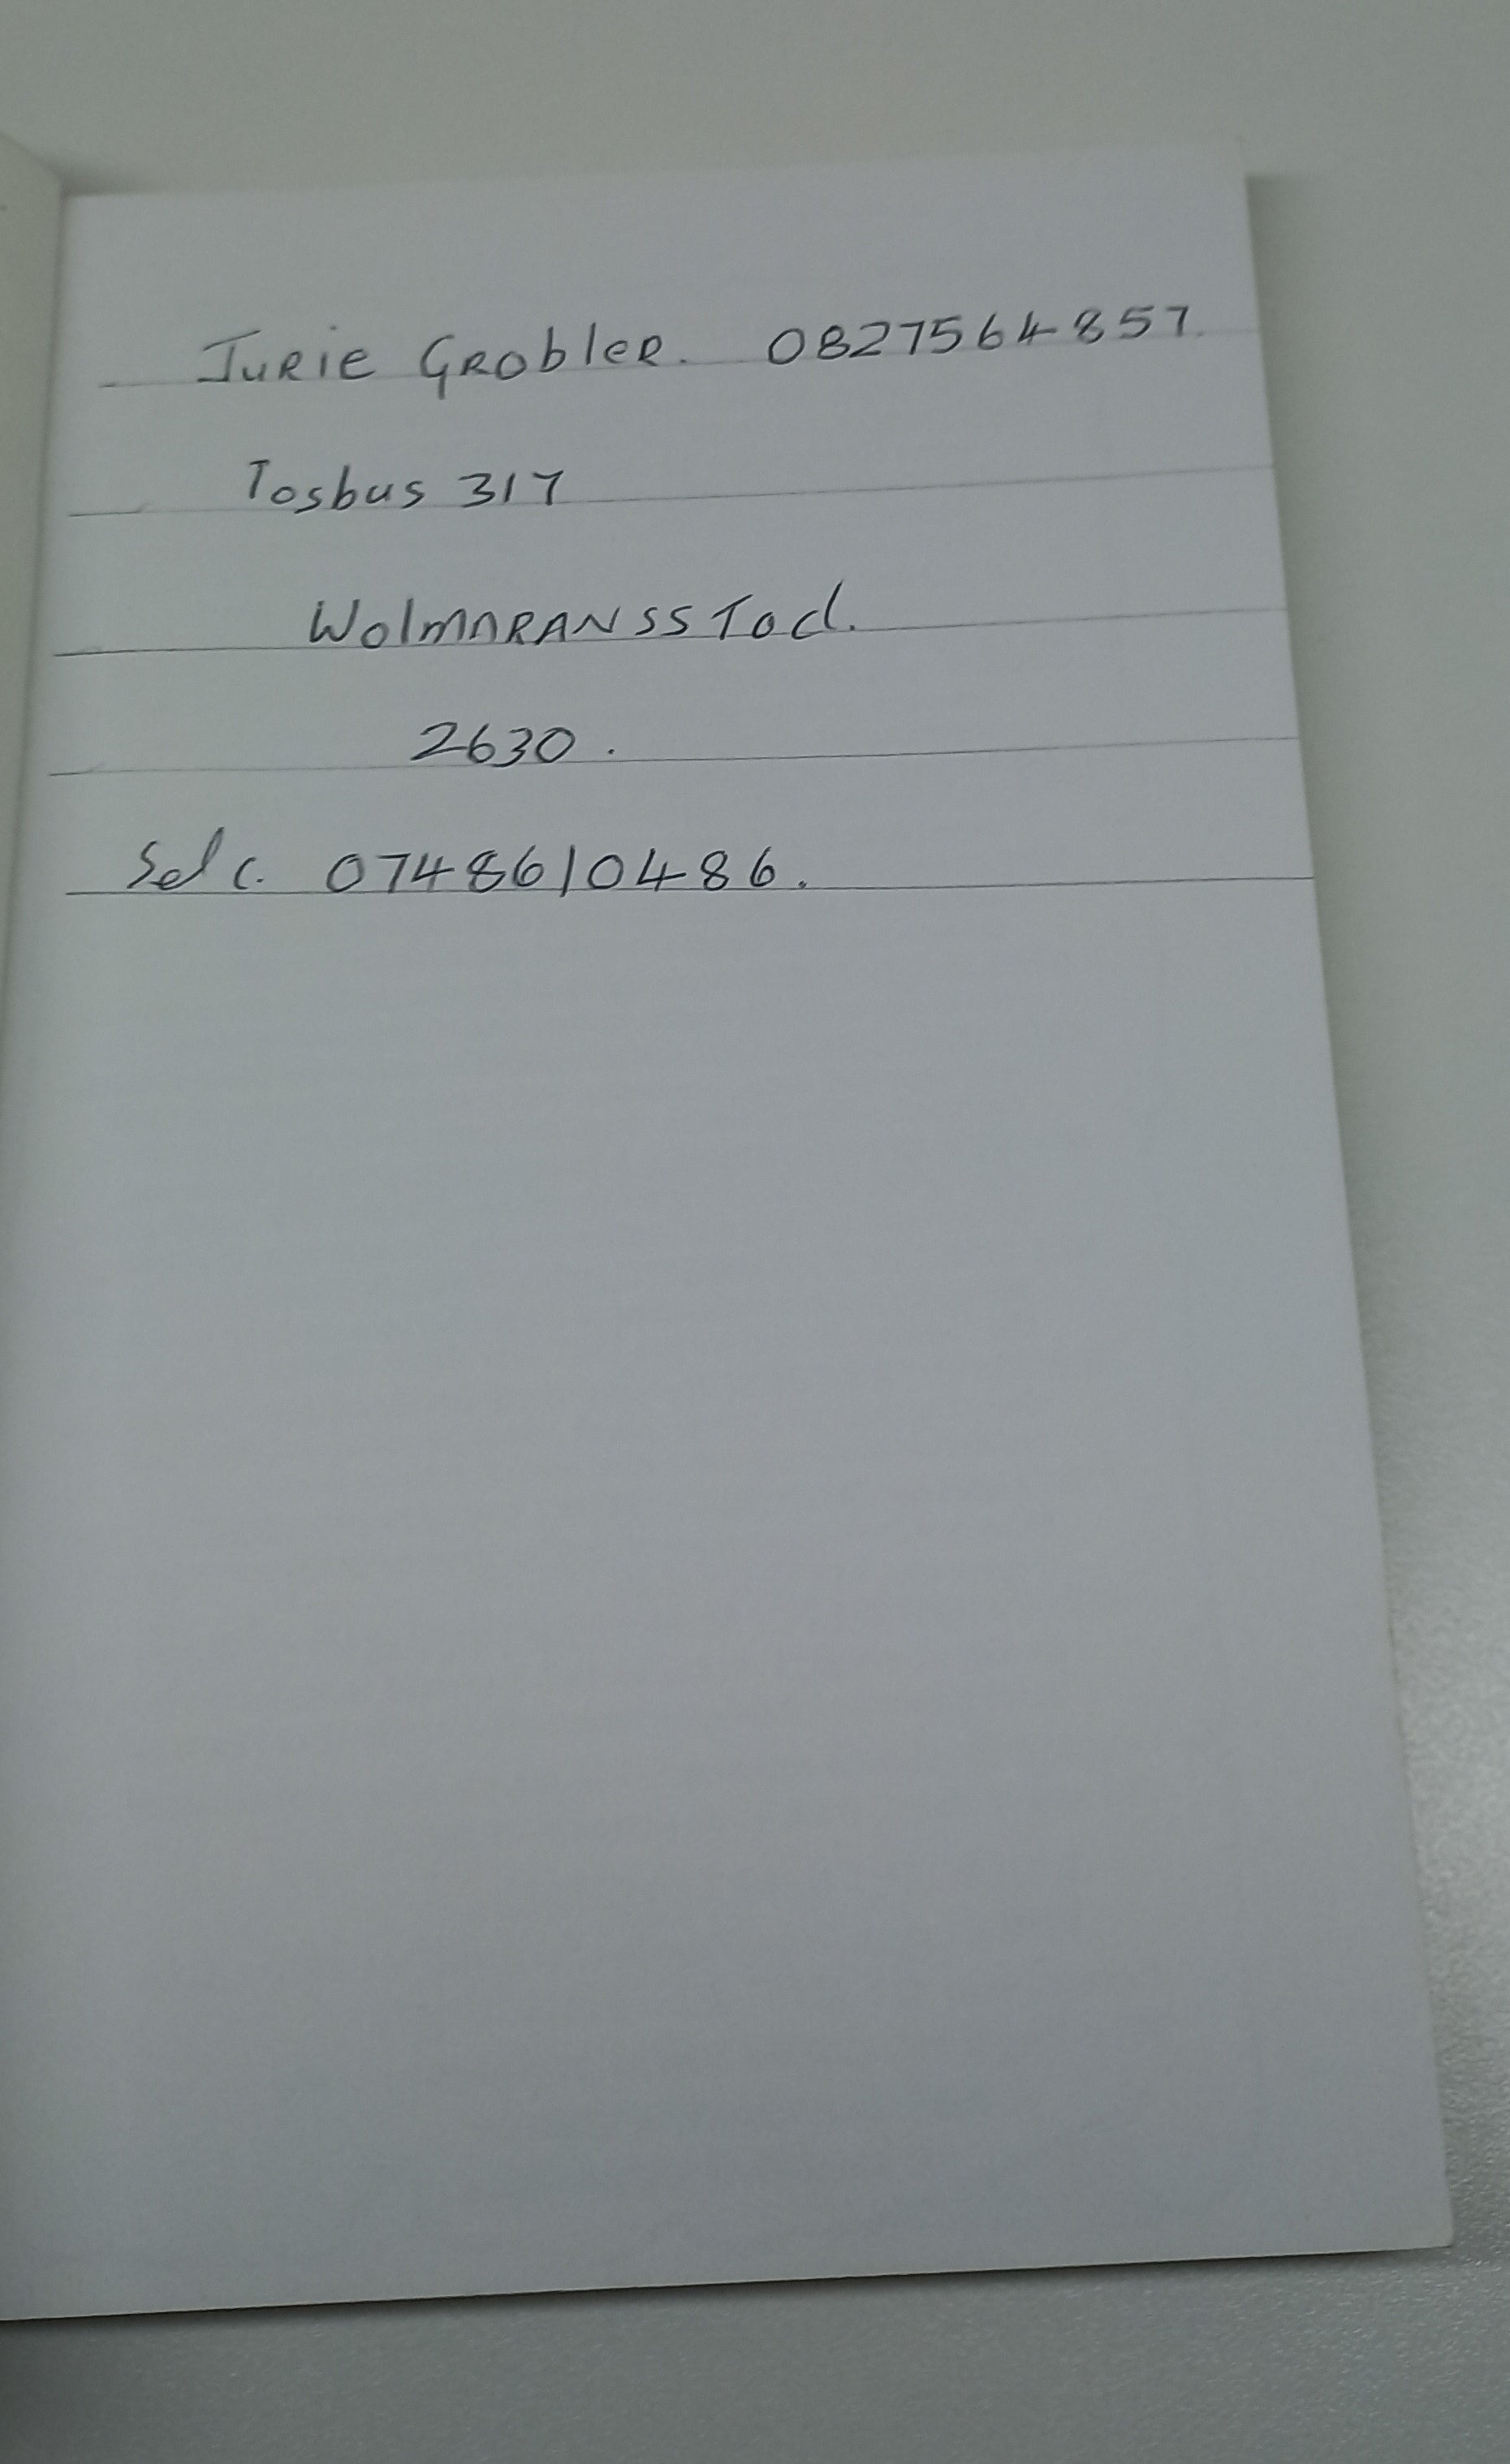 Jurie Grobler. 0827564857.
Posbus 317
Wolmaransstad.
2630.
Sel c. 0748610486.